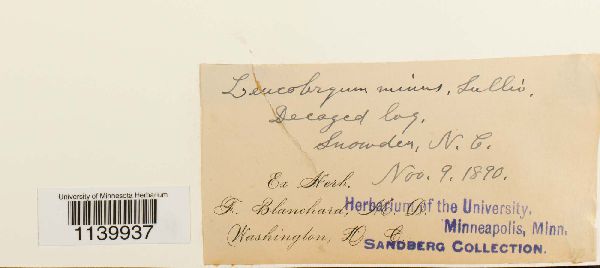 Leucobryum minus, Sulliv.
Decayed log,
Snowden, N. C.
Nov. 9. 1890.
Ex Herb.
F. Blanchard, M. D.
Washington, D. C.
Herbarium of the University.
Minneapolis, Minn.
SANDBERG COLLECTION.
University of Minnesota Herbarium
1139937